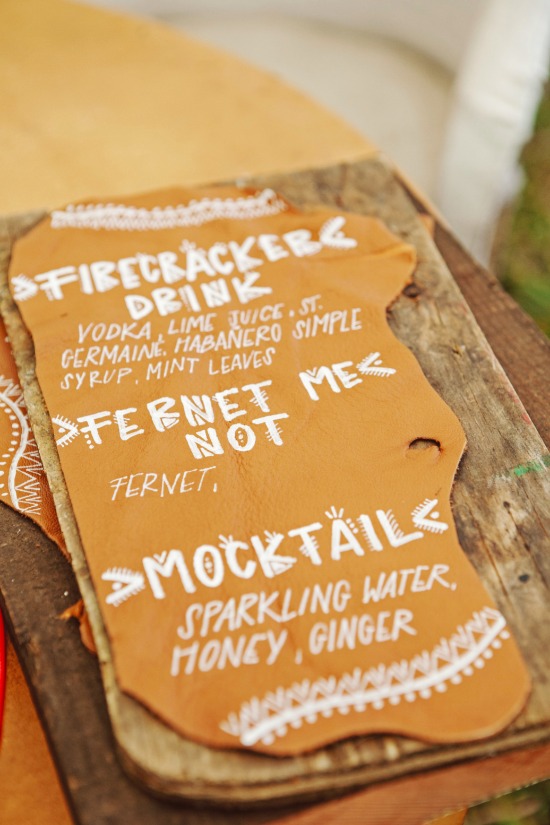 FIRECRACKER
DRINK
VODKA, LIME JUICE, ST.
GERMAINE, HABAÑERO SIMPLE
SYRUP, MINT LEAVES
FERNET ME
NOT
FERNET,
MOCKTAIL
SPARKLING WATER,
HONEY, GINGER